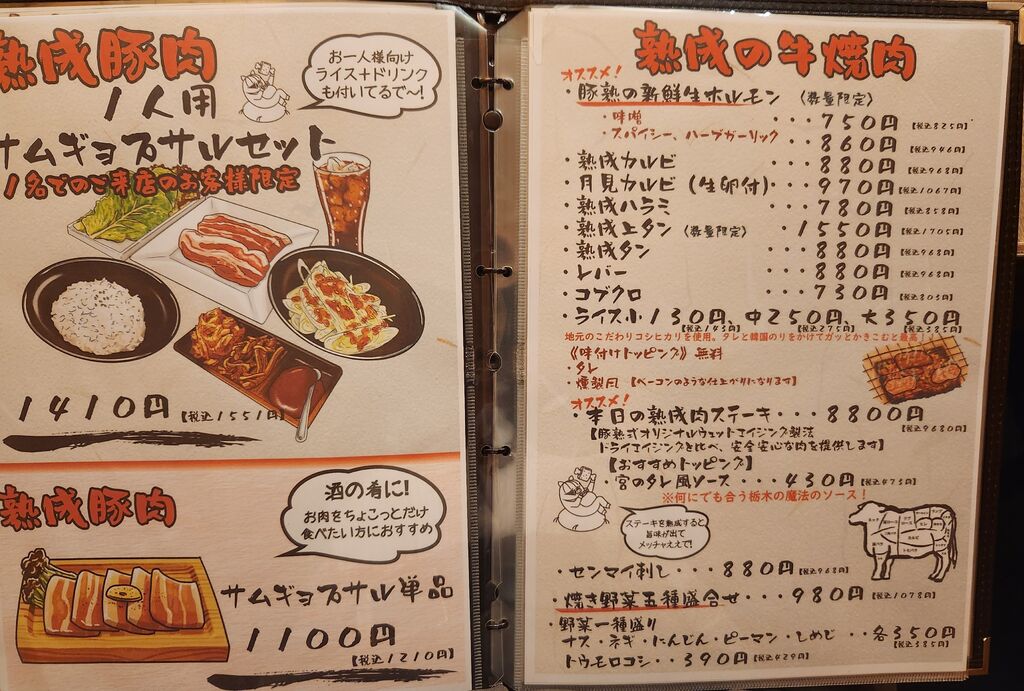 熟成豚肉
1人用
お一人様向け
ライス+ドリンク
も付いてるで〜!
サムギョプサルセット
1名でのご来店のお客様限定
1410円【税込1551円】
熟成豚肉
酒の肴に!
お肉をちょこっとだけ
食べたい方におすすめ
サムギョプサル単品
1100円
【税込1210円】
熟成の牛焼肉
オススメ!
・豚熟の新鮮生ホルモン 〈数量限定〉
・味噌 ・・・750円【税込825円】
・スパイシー、ハーブガーリック ・・・860円【税込946円】
・熟成カルビ ・・・880円【税込968円】
・月見カルビ(生卵付)・・・970円【税込1067円】
・熟成ハラミ ・・・780円【税込858円】
・熟成上タン 〈数量限定〉 ・1550円【税込1705円】
・熟成タン ・・・880円【税込968円】
・レバー ・・・880円【税込968円】
・コブクロ ・・・730円【税込803円】
・ライス小130円、中250円、大350円
【税込143円】 【税込275円】 【税込385円】
地元のこだわりコシヒカリを使用。タレと韓国のりをかけてガッとかきこむと最高!
《味付けトッピング》無料
・タレ
・燻製風【ベーコンのような仕上がりになります】
オススメ!
・本日の熟成肉ステーキ・・・8800円
【税込9680円】
【豚熟式オリジナルウェットエイジング製法
ドライエイジングと比べ、安全安心な肉を提供します】
【おすすめトッピング】
・宮のタレ風ソース・・・430円【税込473円】
※何にでも合う栃木の魔法のソース!
ステーキを熟成すると
旨味が出て
メッチャええで!
・センマイ刺し・・・880円【税込968円】
・焼き野菜五種盛合せ・・・980円【税込1078円】
・野菜一種盛り
ナス・ネギ・にんじん・ピーマン・しめじ ・・各350円
【税込385円】
トウモロコシ・・390円【税込429円】